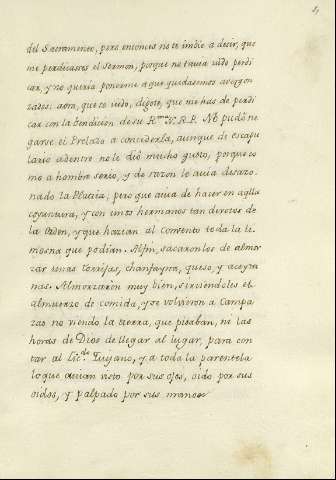 del Sacramento, pero entonces no te embie a decir, que
me predicasses el Sermon, porque no te avia oido predi
car, y no queria ponerme a que quedasemos avergon
zados: aora, que te oido, digote, que me has de predi
car con la bendicion de su R.ma V. R. P. No pudo ne
garse el Prelado a concederla, aunque de escapu
lario adentro no le dió mucho gusto, porque co
mo a hombre serio, y de razon le avia desazo
nado la Platica; pero que avia de hacer en aqlla
coyuntura, y con unos hermanos tan devotos de
la Orden, y que hacian al Convento toda la li
mosna que podian. Alfin, sacaronlos de almor
zar unas torrijas, chanfayna, queso, y aceytu
nas. Almorzaron muy bien, sirviendoles el
almuerzo de comida, y se volvieron a Campa
zas no viendo la tierra, que pisaban, ni las
horas de Dios de llegar al lugar, para con
tar al Lic.do Quijano, y a toda la parentela
lo que avian visto por sus ojos, oido por sus
oidos, y palpado por sus manos